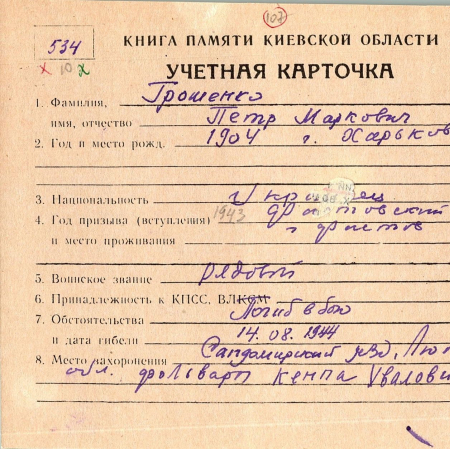 107
534
КНИГА ПАМЯТИ КИЕВСКОЙ ОБЛАСТИ
х 10 х
УЧЕТНАЯ КАРТОЧКА
1. Фамилия, Грошенко
имя, отчество Петр Маркович
2. Год и место рожд. 1904 г. Харьков
3. Национальность Украинец
4. Год призыва (вступления) 1943 Фастовский
и место проживания г Фастов
5. Воинское звание рядовой
6. Принадлежность к КПСС, ВЛКСМ
7. Обстоятельства Погиб в бою
и дата гибели 14.08.1944
8. Место захоронения Сандомирский у-зд, Люб
обл. фольварк Кемпа